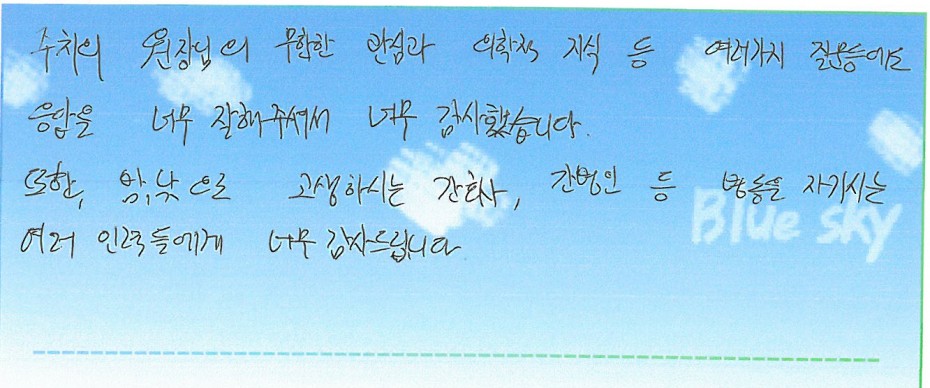 주치의 원장님의 무한한 관심과 의학적 지식 등 여러가지 질문등에도
응답을 너무 잘해주셔서 너무 감사했습니다.
또한, 밤,낮으로 고생하시는 간호사, 간병인 등 병동을 지키시는
여러 인력들에게 너무 감사드립니다
Blue sky